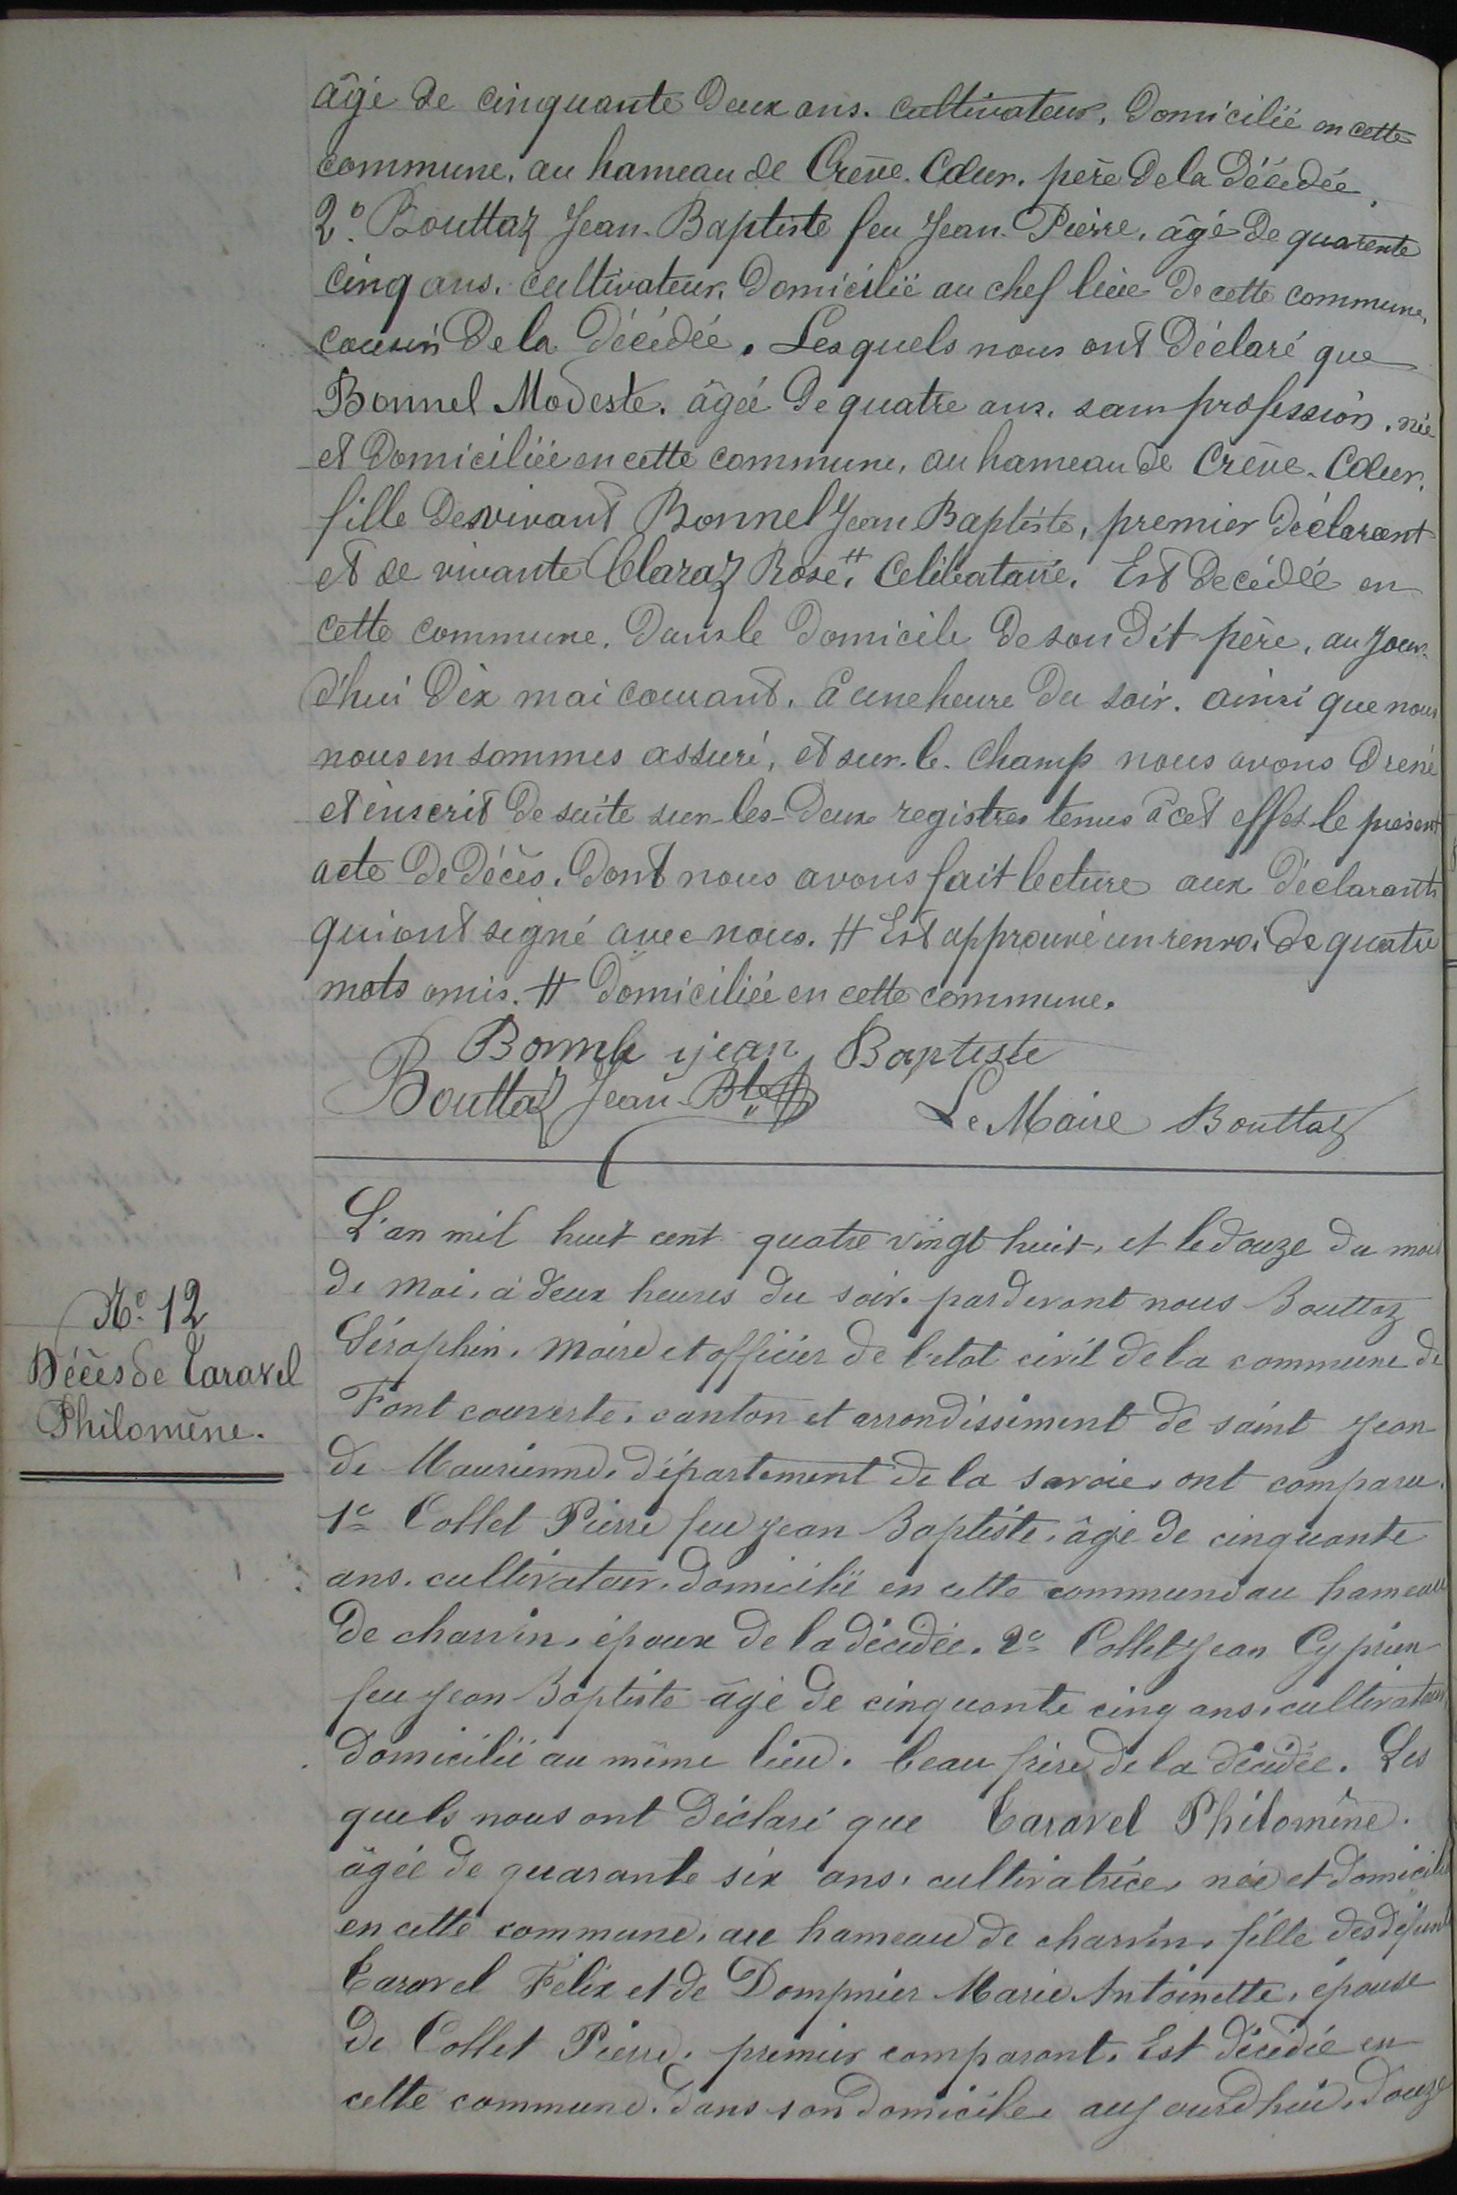 âgé de cinquante deux ans. cultivateur, domicilié en cette
commune, au hameau de Crève-Cœur, père de la décédée,
2° Bouttaz Jean-Baptiste feu Jean-Pierre, âgé de quarente
cinq ans, cultivateur, domicilié au chef lieu de cette commune,
cousin de la décédée. Lesquels nous ont déclaré que
Bonnel Modeste, âgée de quatre ans, sans profession, née
et domiciliée en cette commune, au hameau de Crève-Cœur,
fille des vivant Bonnel Jean Baptiste, premier déclarant
et de vivante Claraz Rose, # Célibataire, Est décédée en
cette commune, dans le domicile de son dit père, au jour-
d'hui dix mai courant, à une heure du soir, ainsi que nous
nous en sommes assuré, et sur-le-champ nous avons dréné
et inscrit de suite sur les deux registres tenus à cet effet le présent
acte de décès, dont nous avons fait lecture aux déclarants
qui ont signé avec nous. # Est approuvé un renvoi de quatre
mots omis. # domiciliée en cette commune.
Bonnel jean Baptiste
Bouttaz Jean-Bte
Le Maire Bouttaz
L'an mil huit cent quatre vingt huit, et le douze du mois
de mai, à deux heures du soir, pardevant nous Bouttaz
Séraphin, maire et officier de l'etat civil de la commune de
N° 12
Décès de Taravel
Philomène.
Font couverte, canton et arrondissement de saint Jean
de Maurienne, département de la savoie, ont comparu.
1° Collet Pierre feu Jean Baptiste, âgé de cinquante
ans, cultivateur, domicilié en cette commune au hameau
de charvin, époux de la décédée. 2° Collet Jean Cyprien
feu Jean Baptiste âgé de cinquante cinq ans, cultivateur
domicilié au même lieu, beau frère de la décédée. Les
quels nous ont déclaré que Taravel Philomène.
âgée de quarante six ans, cultivatrice, née et domicilié
en cette commune, au hameau de charvin, fille des défunt
Taravel Félix et de Dompnier Marie Antoinette, épouse
de Collet Pierre, premier comparant, Est décédée en
cette commune, dans son domicile, aujourd'hui, douze